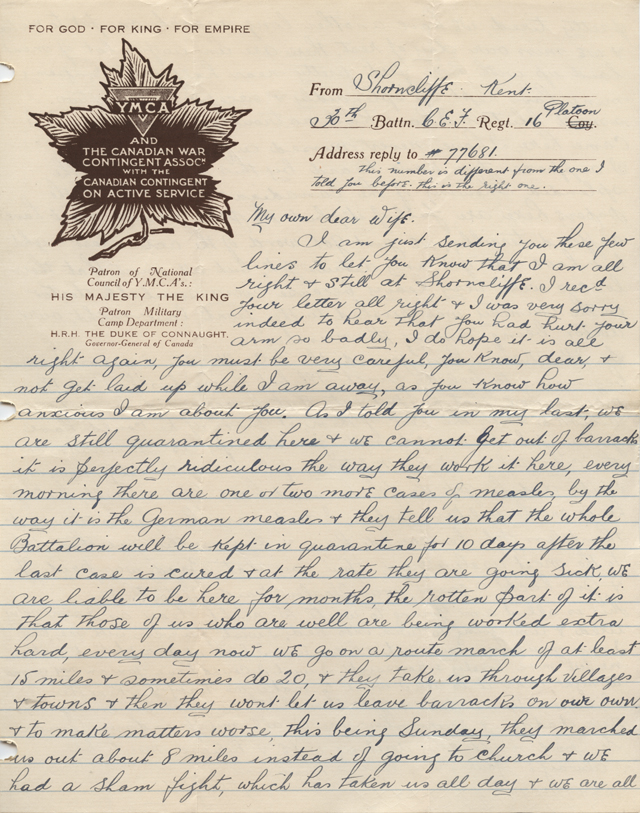 FOR GOD · FOR KING · FOR EMPIRE
YMCA
AND
THE CANADIAN WAR
CONTINGENT ASSOCN
WITH THE
CANADIAN CONTINGENT
ON ACTIVE SERVICE
Patron of National
Council of Y.M.C.A's.:
HIS MAJESTY THE KING
Patron Military
Camp Department:
H.R.H. THE DUKE OF CONNAUGHT,
Governor-General of Canada
From Shorncliffe. Kent.
30th Battn. C.E.F. Regt. 16 Platoon Coy.
Address reply to # 77681.
This number is different from the one I
told you before. this is the right one.
My own dear Wife.
I am just sending you these few
lines to let you know that I am all
right & still at Shorncliffe. I recd
your letter all right & I was very sorry
indeed to hear that you had hurt your
arm so badly, I do hope it is all
right again, you must be very careful, you know, dear, &
not get laid up while I am away, as you know how
anxious I am about you. As I told you in my last, we
are still quarantined here & we cannot get out of barracks
it is perfectly ridiculous the way they work it here, every
morning there are one or two more cases of measles, by the
way it is the German measles & they tell us that the whole
Battalion will be kept in quarantine for 10 days after the
last case is cured & at the rate they are going sick, we
are liable to be here for months, the rotten part of it is
that those of us who are well are being worked extra
hard, every day now we go on a route march of at least
15 miles & sometimes do 20, & they take us through villages
& towns & then they wont let us leave barracks on our own
& to make matters worse, this being Sunday, they marched
us out about 8 miles instead of going to church & we
had a sham fight, which has taken us all day & we are all